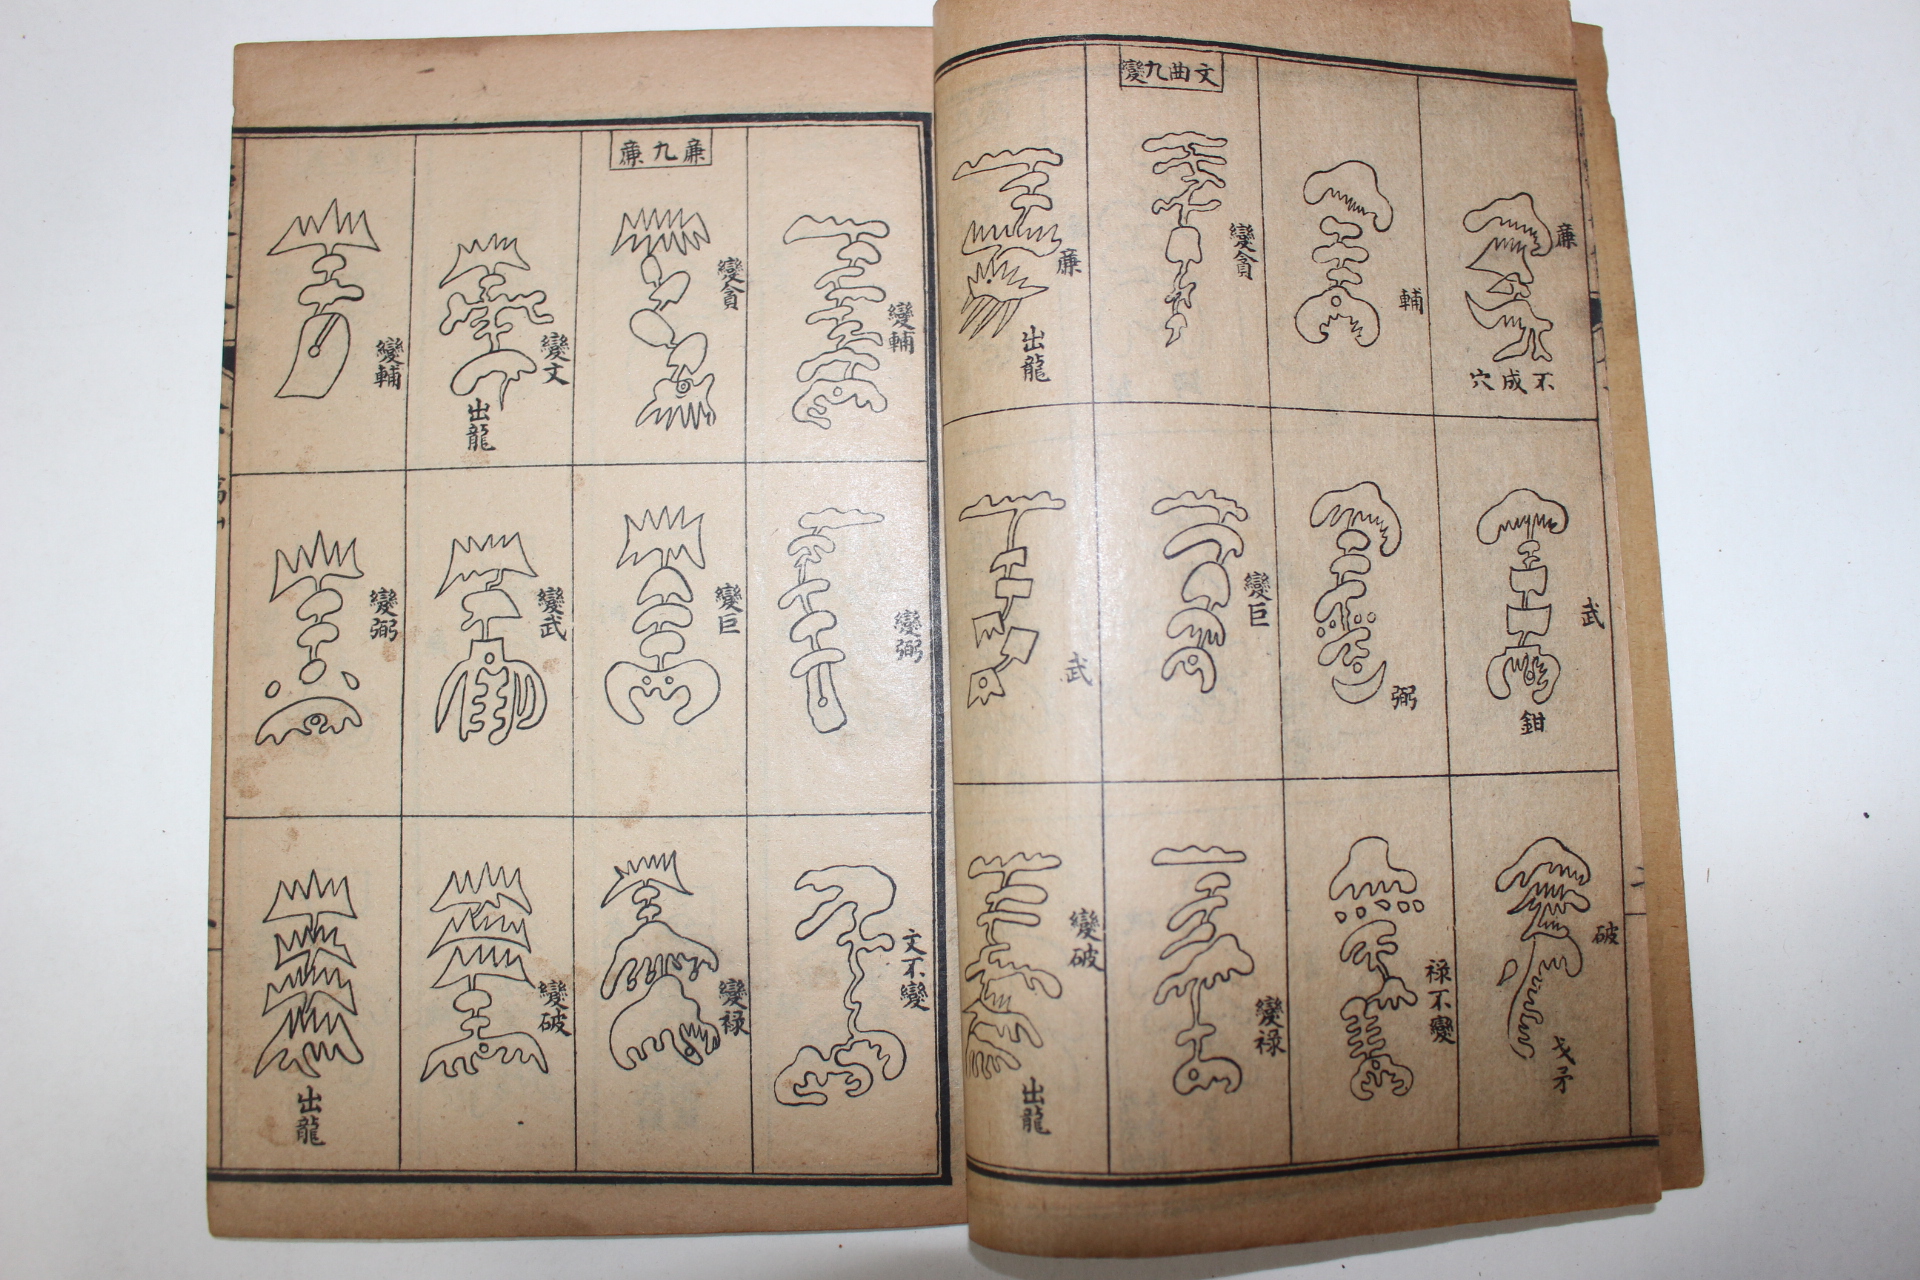 廉
不成穴
武
鉗
破
戈矛
輔
弼
禄不變
文曲九變
變貪
變巨
變禄
廉
出龍
武
變破
出龍
變輔
變弼
文不變
廉九廉
變貪
變巨
變禄
變文
出龍
變武
變破
變輔
變弼
出龍